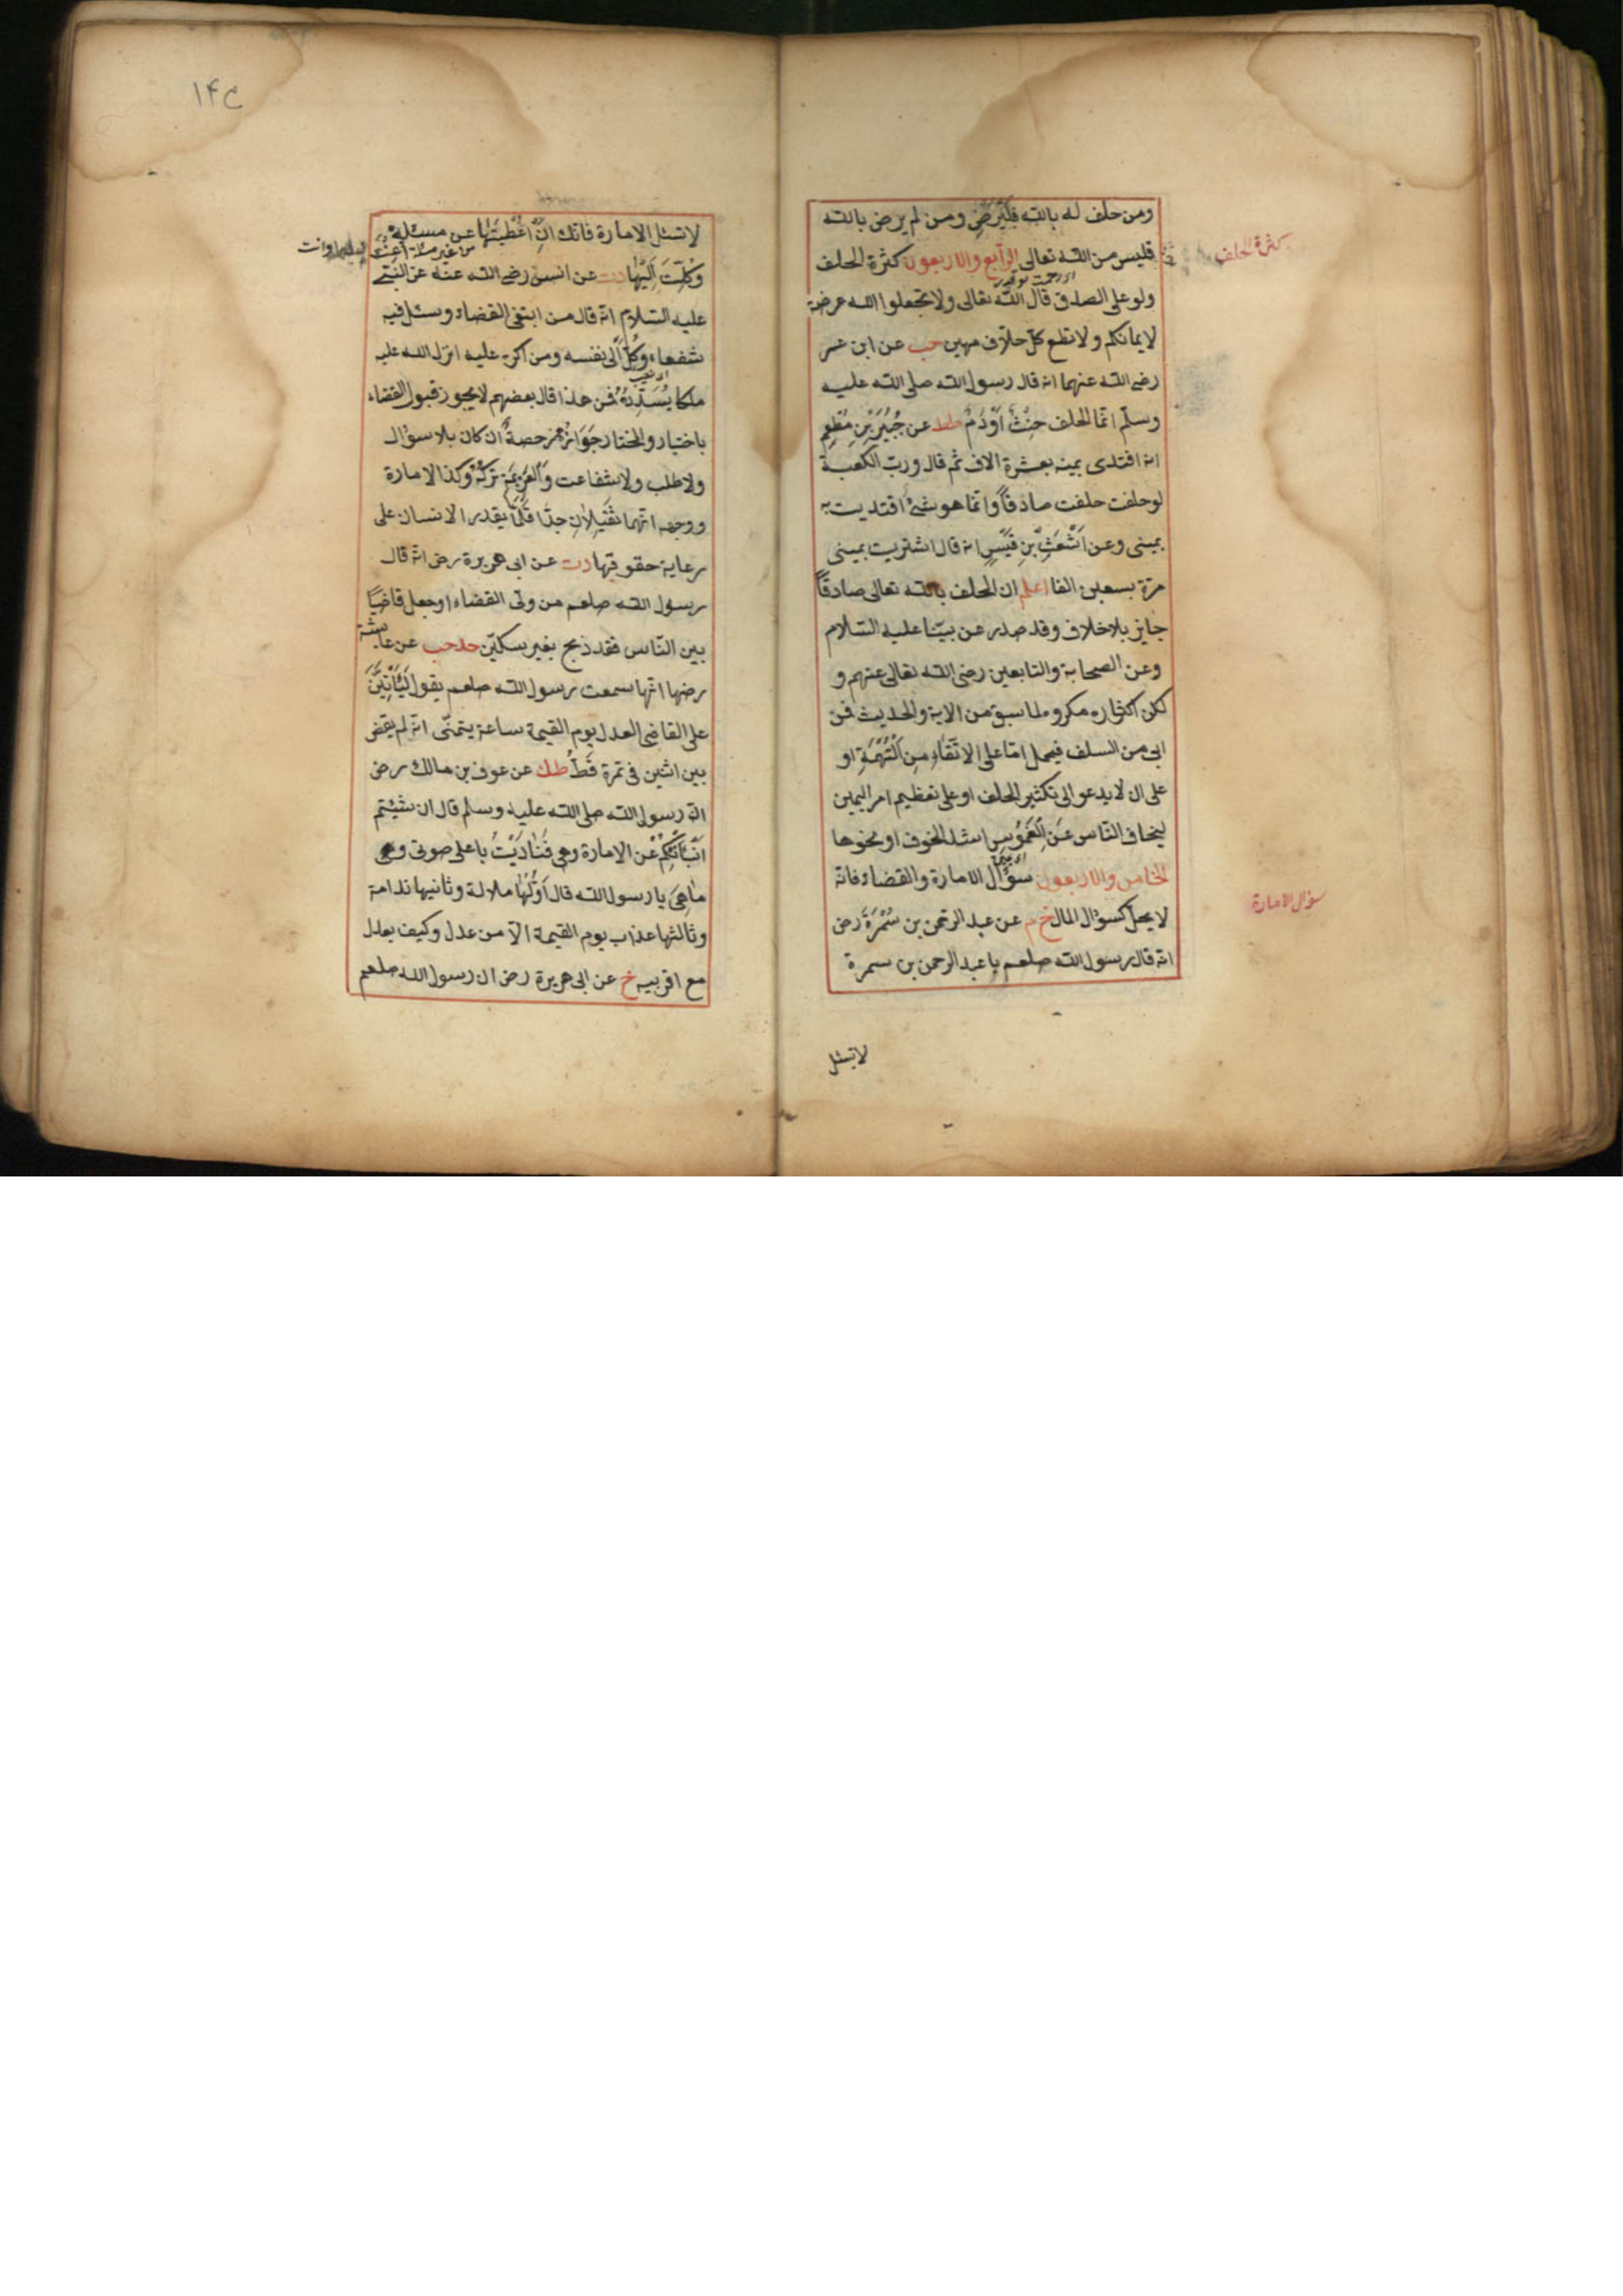 ومن حلف له بالله فليرض ومن لم يرض بالله
فليس من الله تعالى الرابع والاربعون كثرة الحلف
كثرة الحلف
ولو على الصدق قال الله تعالى ولا تجعلوا الله عرضة
لايمانكم ولا تطع كل حلاف مهين حب عن ابن عمر
رضى الله عنهما انه قال رسول الله صلى الله عليه
وسلم انما الحلف حِنْثٌ اَوْنَدَمٌ طط عن جُبَيْرِ بْنِ مُطْعِمٍ
انه افتدى يمينه بعشرة الاف ثم قال ورب الكعبة
لو حلفت حلفت صادقاً وانما هو شئ افتديت به
يمينى وعن اَشْعَثِ بْنِ قَيْسٍ انه قال اشتريت يمينى
مرة بسبعين الفا اعلم ان الحلف بالله تعالى صادقاً
جايز بلا خلاف وقد صدر عن نبينا عليه السلام
وعن الصحابة والتابعين رضى الله تعالى عنهم و
لكن اكثاره مكروه لما سبق من الاية والحديث فمن
ابى من السلف فيحمل اما على الاتقاءِ مِنَ الْتُهْمَةِ او
على ان لا يدعو الى تكثير الحلف او على تعظيم امر اليمين
ليخاف الناس عَنِ الْغَمُوسِ اشد الخوف او نحوها
الخامس والاربعون سؤال الامارة والقضاء فانه
سؤال الامارة
لا يحل كسؤال المال خ م عن عبد الرحمن بن سَمُرَةَ رض
انه قال رسول الله صلعم يا عبد الرحمن بن سمرة
لا تسئل
١٤٢
لا تسئل الامارة فانك ان اُعْطِيتَهَا عن مسئلة
من غير مسئلة اُعِنْتَ عليها وانت
وُكِلْتَ اِلَيْهَا دت عن انس رضى الله عنه عن النبى
عليه السلام انه قال من ابتغى القضاء وسئل فيه
شفعاء وُكِلَ الى نفسه ومن اكره عليه انزل الله عليه
ملكا يُسَدِّدُهُ فمن هذا قال بعضهم لا يجوز قبول القضاء
باختيار والمختار جَوَازُهُ رخصةً ان كان بلا سؤال
ولا طلب ولا شفاعت وَالعَزِيمَةُ تَرْكُهُ وكذا الامارة
ووجهه انهما ثَقِيلاَنِ جِدًّا قَلَّمَا يقدر الانسان على
رعاية حقوقها دت عن ابى هريرة رض انه قال
رسول الله صلعم من ولى القضاء او جعل قاضيًا
بين الناس فقد ذبح بغير سكين حد حب عن عايشة
رضها انها سمعت رسول الله صلعم يقول لَيَأْتِيَنَّ
على القاضى العدل يوم القيمة ساعة يتمنى انه لم يقض
بين اثنين فى تمرة قَطُّ طك عن عوف بن مالك رض
ان رسول الله صلى الله عليه وسلم قال ان شئتم
اَنْبَأتُكُمْ عن الامارة وما هى فَنَادَيْتُ باعلى صوتى و
مَاهِىَ يا رسول الله قال اَوَّلُهَا ملالة وثانيها ندامة
وثالثها عذاب يوم القيمة الا من عدل وكيف يعدل
مع اقربيه خ عن ابى هريرة رض ان رسول الله صلعم